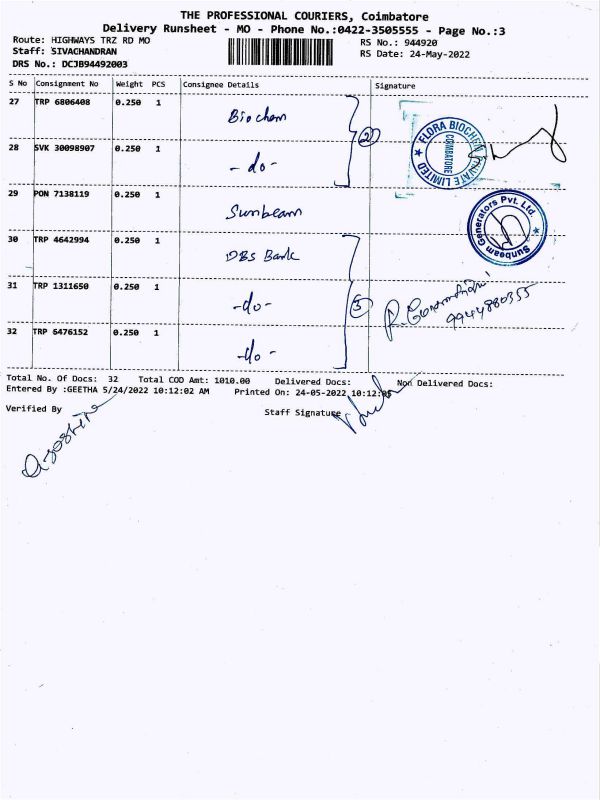 THE PROFESSIONAL COURIERS, Coimbatore
Delivery Runsheet - MO - Phone No.:0422-3505555 - Page No.:3
Route: HIGHWAYS TRZ RD MO RS No.: 944920
Staff: SIVACHANDRAN RS Date: 24-May-2022
DRS No.: DCJB94492003
S No Consignment No Weight PCS Consignee Details Signature
27 TRP 6806408 0.250 1 Biochem
2
FLORA BIOCHEM PRIVATE LIMITED ★ COIMBATORE
28 SVK 30098907 0.250 1 - do -
29 PON 7138119 0.250 1 Sunbeam
Sunbeam Generators Pvt. Ltd. ★
30 TRP 4642994 0.250 1 DBS Bank
31 TRP 1311650 0.250 1 - do -
3
9944880355
32 TRP 6476152 0.250 1 - do -
Total No. Of Docs: 32 Total COD Amt: 1010.00 Delivered Docs: Non Delivered Docs:
Entered By :GEETHA 5/24/2022 10:12:02 AM Printed On: 24-05-2022 10:12:05
Verified By Staff Signature